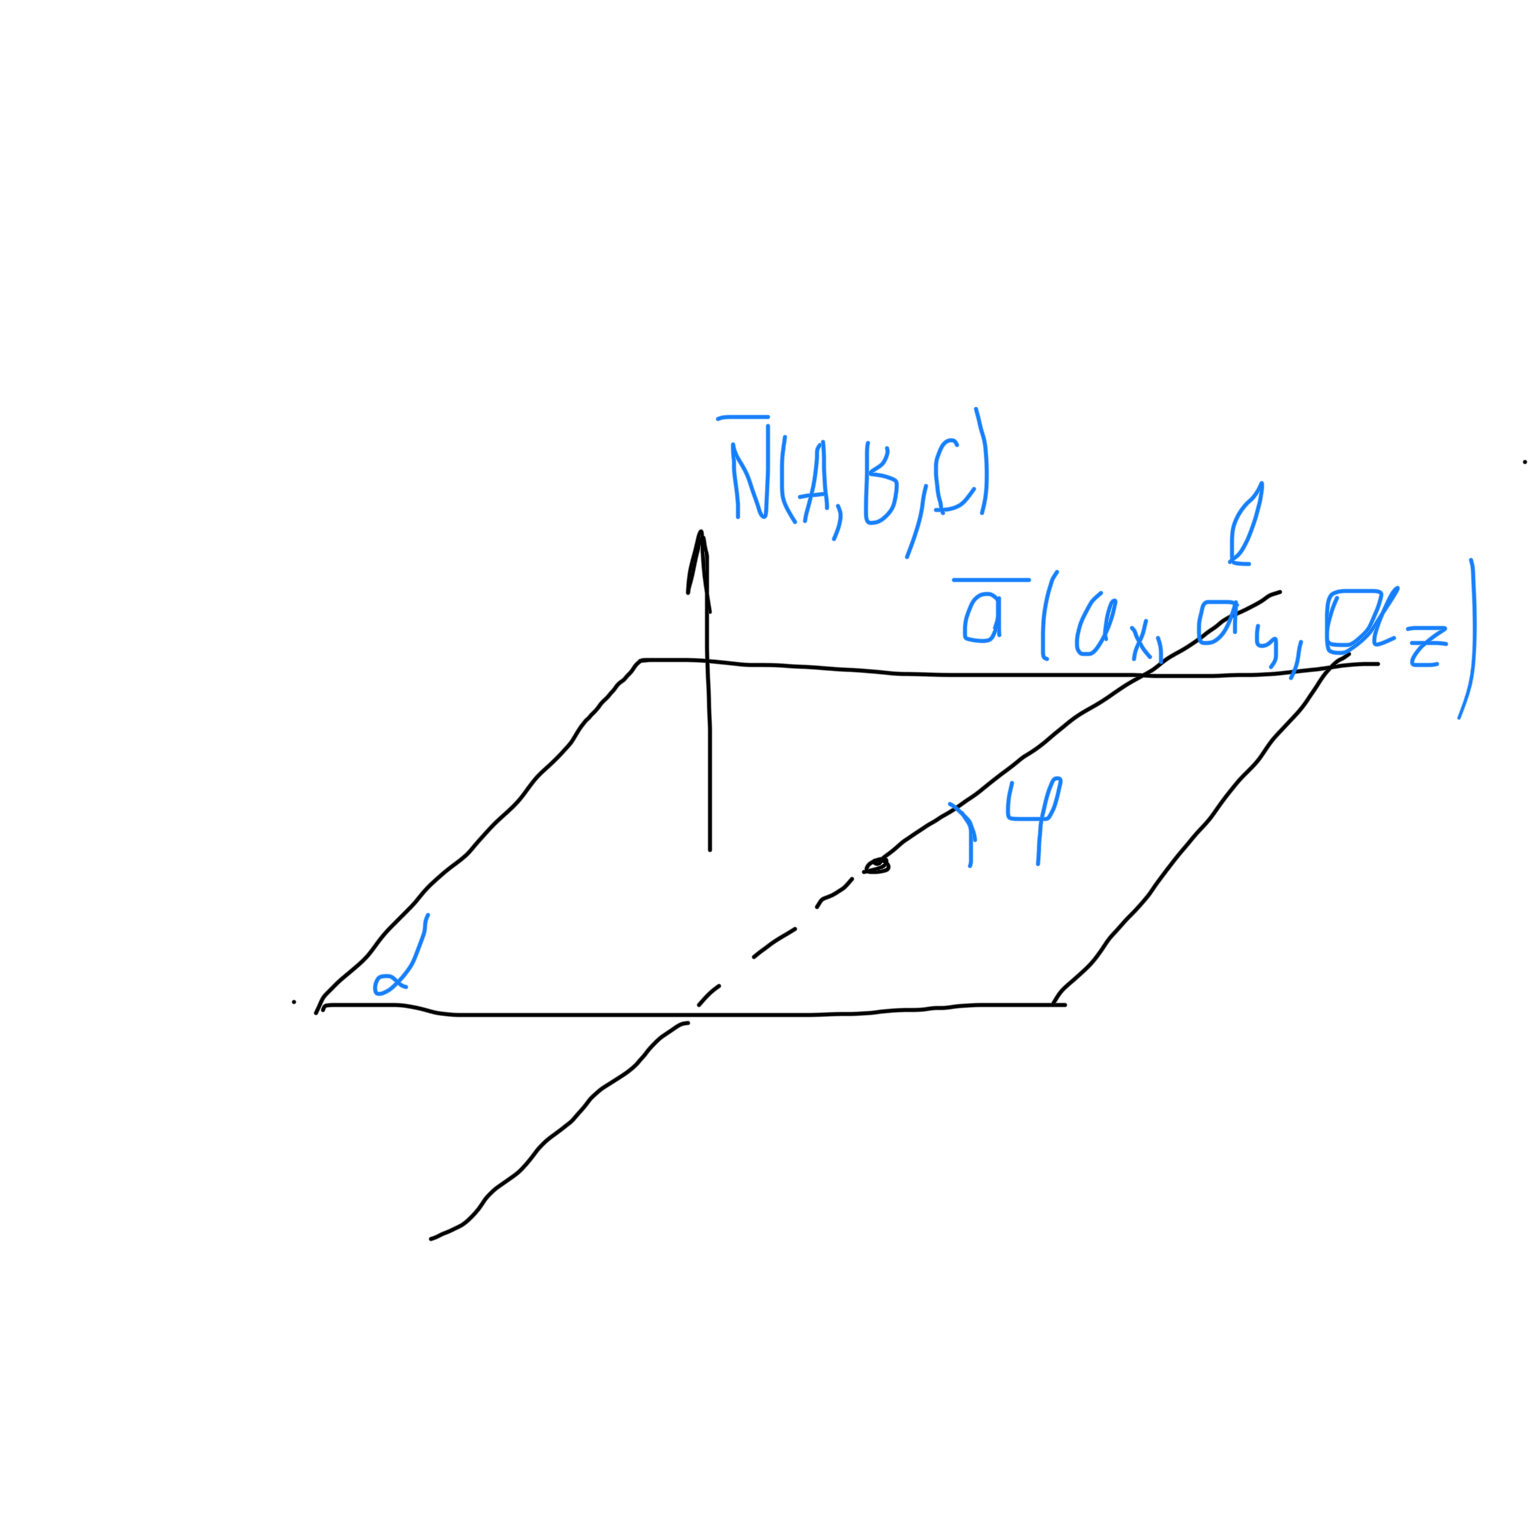 N̅(A, B, C)
ℓ
a̅(aₓ, aᵧ, a_z)
φ
α